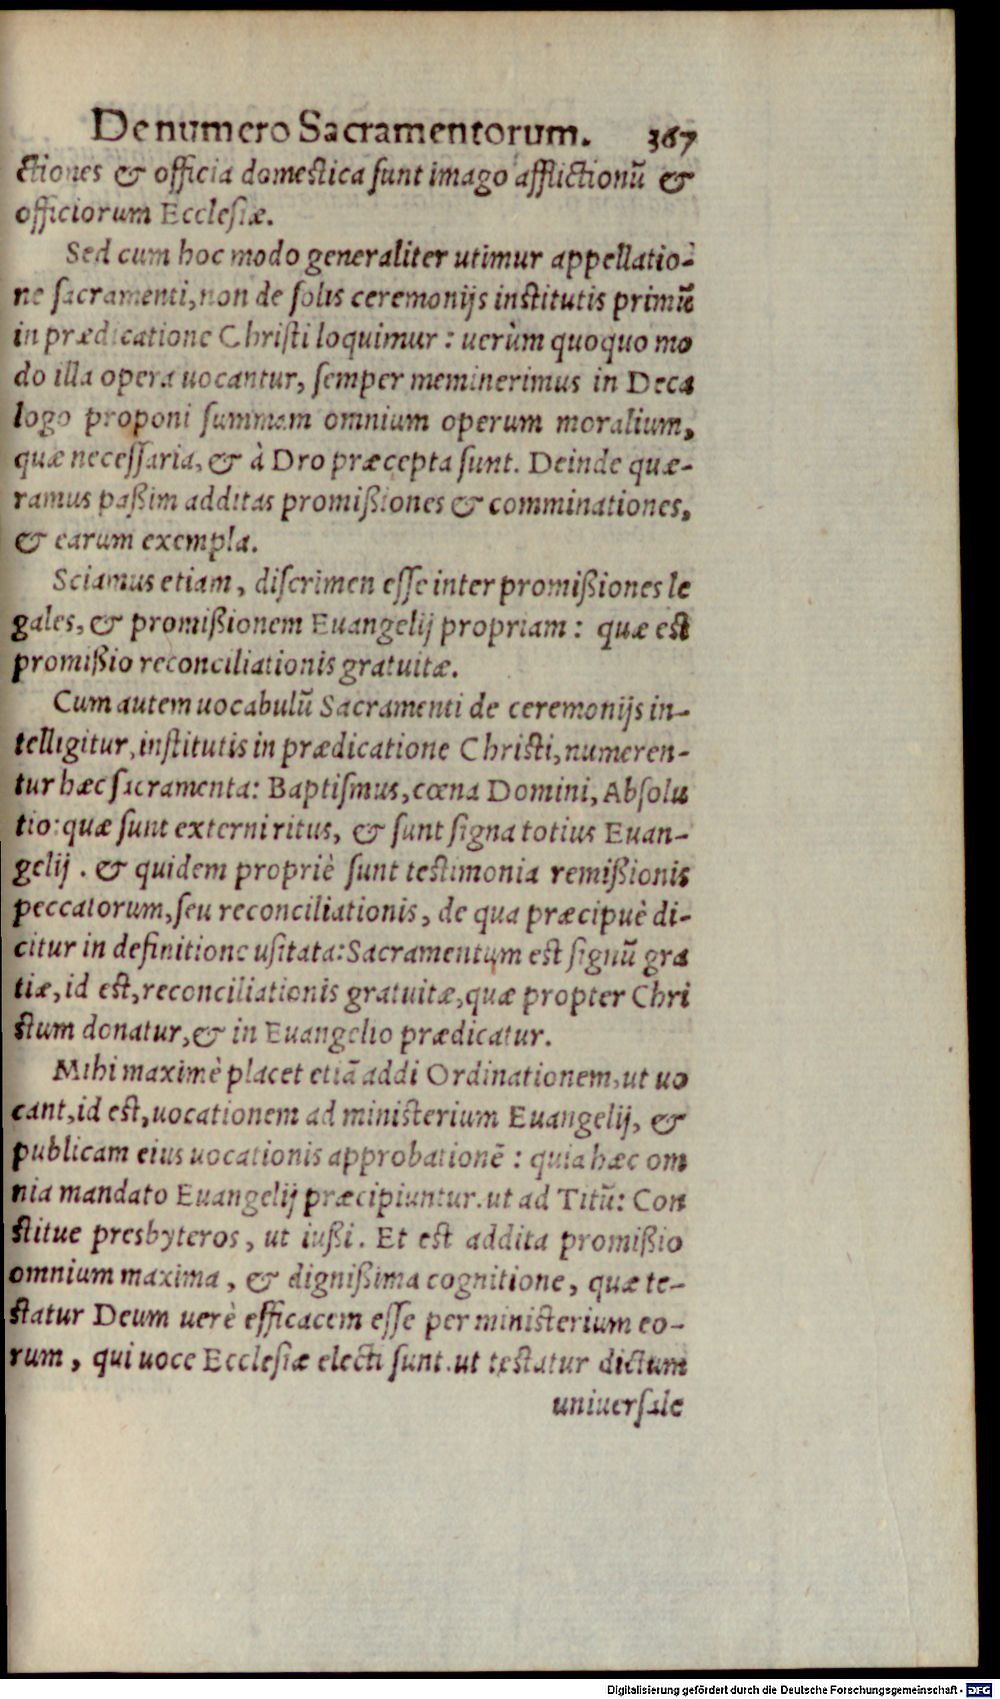 De numero Sacramentorum. 367
ctiones & officia domestica sunt imago afflictionũ &
officiorum Ecclesiæ.
Sed cum hoc modo generaliter utimur appellatio-
ne sacramenti, non de solis ceremonijs institutis primũ
in prædicatione Christi loquimur : uerùm quoquo mo
do illa opera uocantur, semper meminerimus in Deca
logo proponi summam omnium operum moralium,
quæ necessaria, & à Dro præcepta sunt. Deinde quæ-
ramus paßim additas promißiones & comminationes,
& earum exempla.
Sciamus etiam, discrimen esse inter promißiones le
gales, & promißionem Euangelij propriam : quæ est
promißio reconciliationis gratuitæ.
Cum autem uocabulũ Sacramenti de ceremonijs in-
telligitur, institutis in prædicatione Christi, numeren-
tur hæc sacramenta: Baptismus, cœna Domini, Absolu
tio: quæ sunt externi ritus, & sunt signa totius Euan-
gelij . & quidem propriè sunt testimonia remißionis
peccatorum, seu reconciliationis, de qua præcipuè di-
citur in definitione usitata: Sacramentum est signũ gra
tiæ, id est, reconciliationis gratuitæ, quæ propter Chri
stum donatur, & in Euangelio prædicatur.
Mihi maximè placet etiã addi Ordinationem, ut uo
cant, id est, uocationem ad ministerium Euangelij, &
publicam eius uocationis approbationẽ : quia hæc om
nia mandato Euangelij præcipiuntur. ut ad Titũ: Con
stitue presbyteros, ut iußi. Et est addita promißio
omnium maxima, & dignißima cognitione, quæ te-
statur Deum uerè efficacem esse per ministerium eo-
rum, qui uoce Ecclesiæ electi sunt. ut testatur dictum
uniuersale
Digitalisierung gefördert durch die Deutsche Forschungsgemeinschaft - DFG